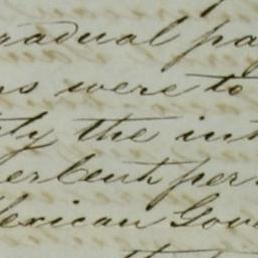 gradual pa
ns were to
ly the int
per Cent per
Mexican Gov
the